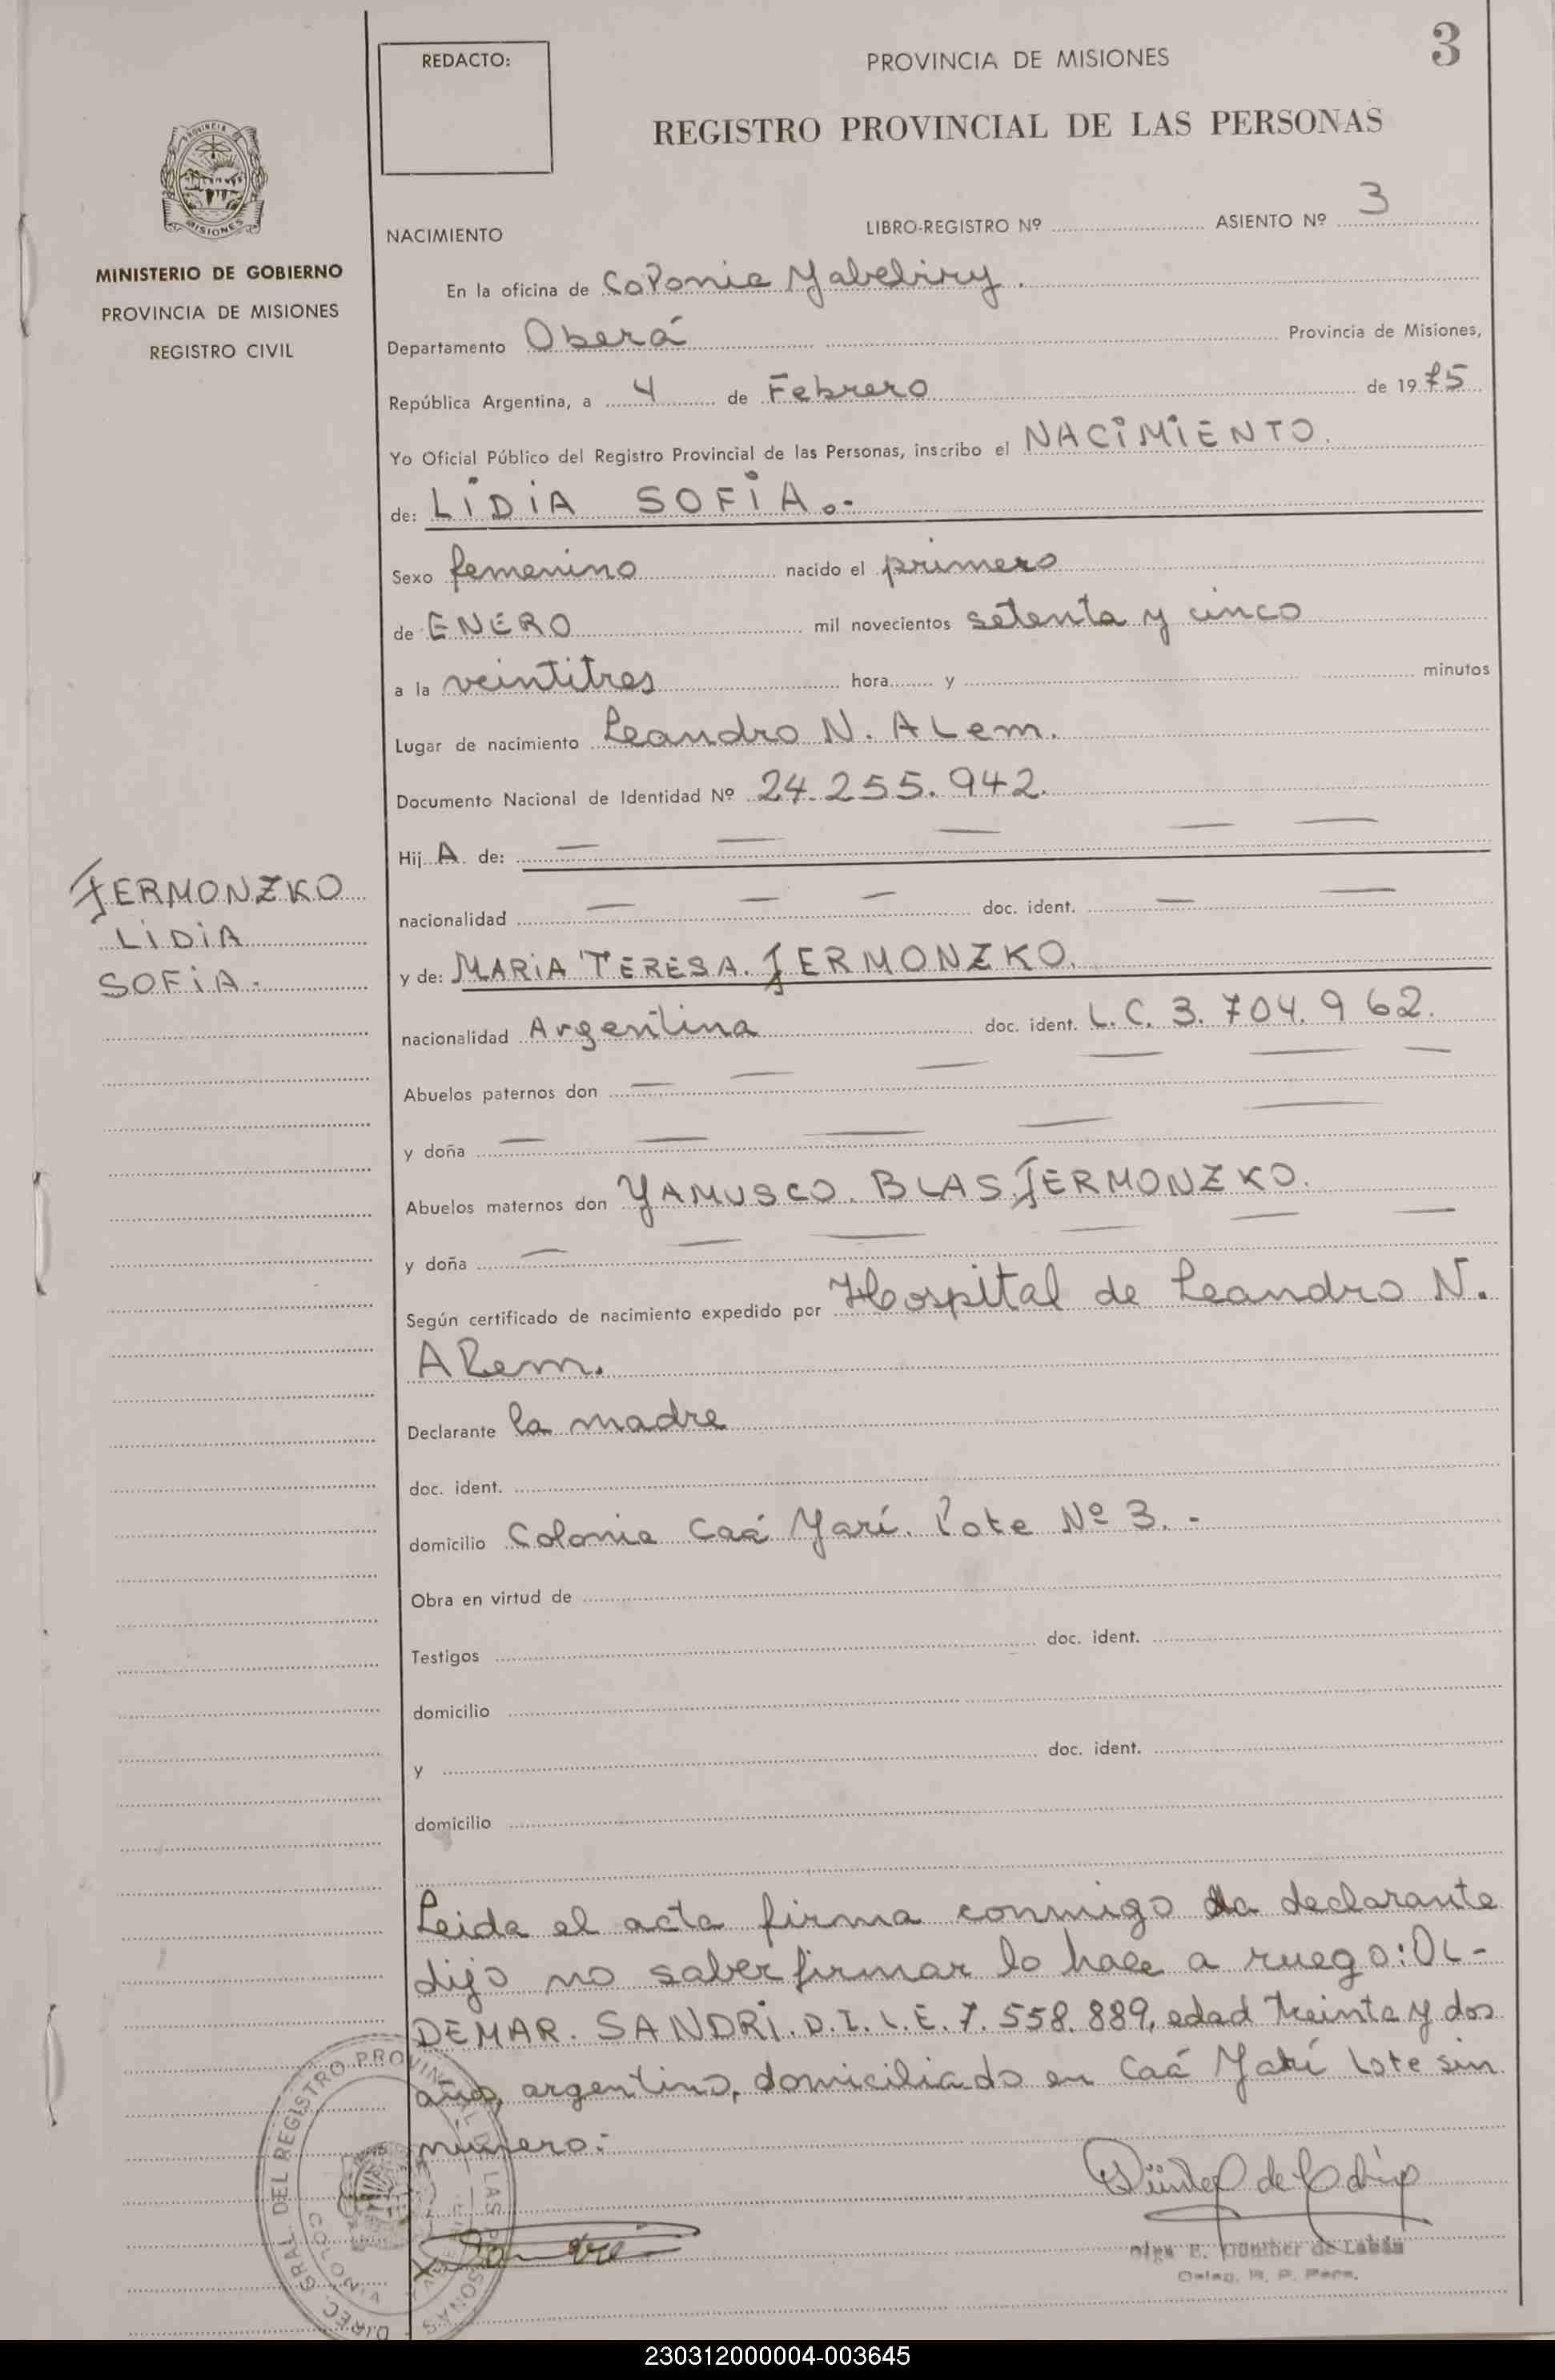 3
REDACTO:
PROVINCIA DE MISIONES
REGISTRO PROVINCIAL DE LAS PERSONAS
PROVINCIA DE
MISIONES
MINISTERIO DE GOBIERNO
PROVINCIA DE MISIONES
REGISTRO CIVIL
NACIMIENTO LIBRO-REGISTRO Nº ASIENTO Nº 3
En la oficina de Colonia Yabebiry.
Departamento Oberá Provincia de Misiones,
República Argentina, a 4 de Febrero de 1975
Yo Oficial Público del Registro Provincial de las Personas, inscribo el NACIMIENTO.
de: LIDIA SOFIA.-
Sexo femenino nacido el primero
de ENERO mil novecientos setenta y cinco
a la veintitres hora y minutos
Lugar de nacimiento Leandro N. ALem.
Documento Nacional de Identidad Nº 24.255.942.
Hij A de: — — — — —
nacionalidad — — — doc. ident. — —
y de: MARIA TERESA JERMONZKO.
nacionalidad Argentina doc. ident. L.C. 3.704.962.
Abuelos paternos don — — — — — —
y doña — — — — —
Abuelos maternos don YAMUSCO. BLAS JERMONZKO.
y doña — — — — — —
Según certificado de nacimiento expedido por Hospital de Leandro N.
Alem.
Declarante la madre
doc. ident.
domicilio Colonia Caá Yarí. Lote Nº 3.-
Obra en virtud de
Testigos doc. ident.
domicilio
y doc. ident.
domicilio
Leida el acta firma conmigo la declarante
dijo no saber firmar lo hace a ruego: OL-
DEMAR. SANDRI. D.I.L.E. 7.558.889, edad treinta y dos
años, argentino, domiciliado en Caá Yarí lote sin
número.-
JERMONZKO
LIDIA
SOFIA.
DIREC. GRAL. DEL REGISTRO PROVINCIAL DE LAS PERSONAS
Olga E. Günther de
Deleg. R. P. Pers.
230312000004-003645